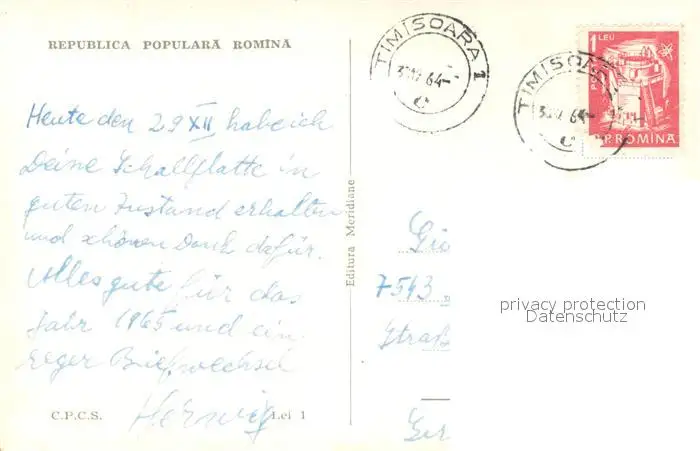 REPUBLICA POPULARĂ ROMÎNĂ
Heute den 29 XII habe ich
Deine Schallplatte in
guten Zustand erhalten
und schönen Dank dafür.
Alles gute für das
Jahr 1965 und ein
reger Briefwechsel
Herwig
C.P.C.S. Lei 1
Editura Meridiane
TIMIȘOARA 1
64
c
TIMIȘOAR
64
c
1 LEU
P.ROMINA
Gio
7543
Straß
Ger
privacy protection
Datenschutz